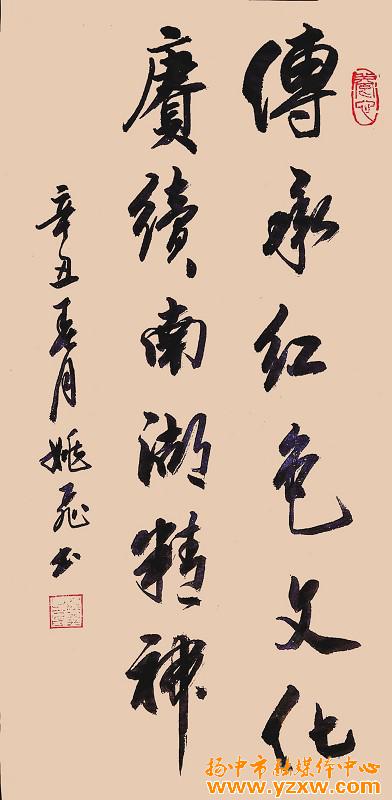 傳承红色文化
賡續南湖精神
辛丑月姚飛书
扬中市融媒体中心
www.yzxw.com